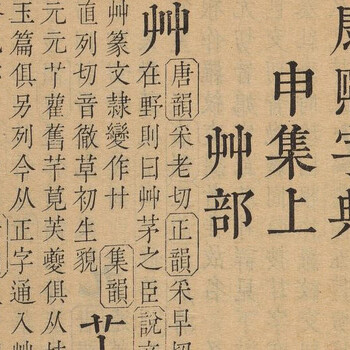 康熙字典
申集上
艸部
艸
唐韻采老切正韻采早切
在野則曰艸茅之臣說文
艸篆文隷變作艹 集韻
直列切音徹草初生貌
元元艹雚舊芉莧芙虁俱从
玉篇俱另列今从正字通入艸